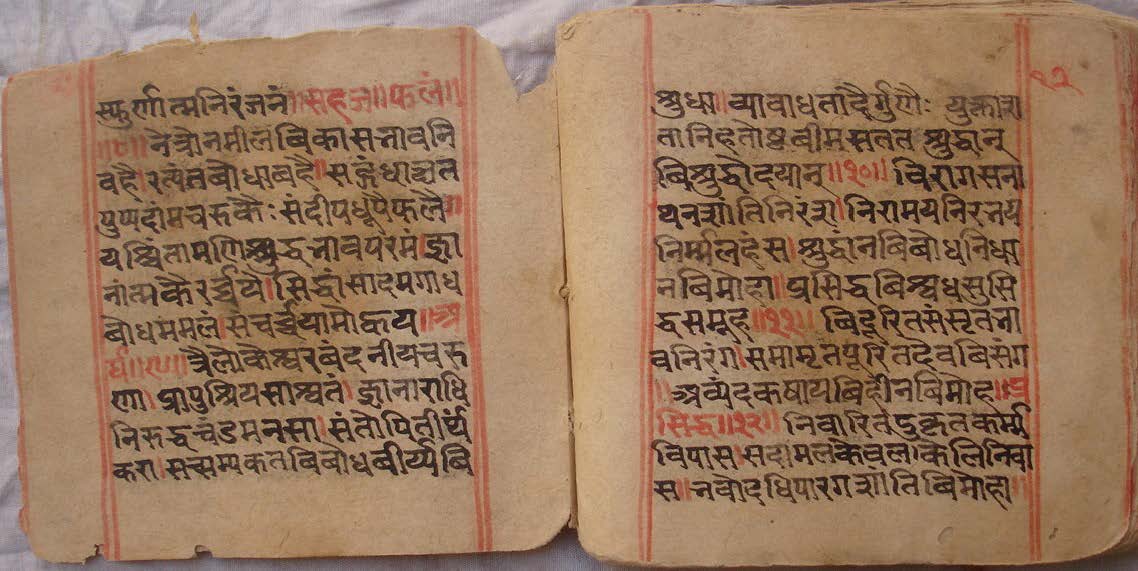 स्फुर्णात्मनिरंजनं॥सहज॥फलं॥
॥८॥नैत्रौनमीलबिकासनावनि
वहै।रत्यंतबौधाबदै॥सद्गंधाक्षत
पुष्पदांमचरुकैःसंदीपधूपेफलै॥
यश्चिंतामणिशुद्धनावपरमं।ज्ञा
नांत्मकैरर्च्चये।सिद्धांसादमगाध
बौधममलंसंचर्च्चयामोकय॥अ
र्घ॥९॥त्रैलोकैश्वरबंदनीयचरु
णा।प्रापुश्रियसाश्वतं।ज्ञानाराधि
निरुद्धचंडमनसा।संतोपितीर्थं
करा।सत्सम्यकतबिबोधबीर्य्यबि
शुधा॥व्याबाधतादैर्गुणौः युक्तारा
तानिहतोष्टवीमसततशुद्धान्
बिशुद्धौदयान्॥१०॥बिरागसना
थनशांतिनिरंश।निरामयनिरनय
निर्म्मलहंस।शुद्धानबिबोधनिधा
नबिमोहा।प्रसिद्धबिशुधसुसि
द्धसमूह॥११॥बिदुरितसंसृतना
वनिरंग।समामृतपूरितदेवबिसंग
॥अव्यंदकषायबिहीनबिमोहा॥प्र
सिद्ध॥१२॥निवारितदुकृतकर्म्म
विपास।सदामलकेवलाकेलिनिवा
स॥नवोदधिपारगशांतिबिमोहा॥